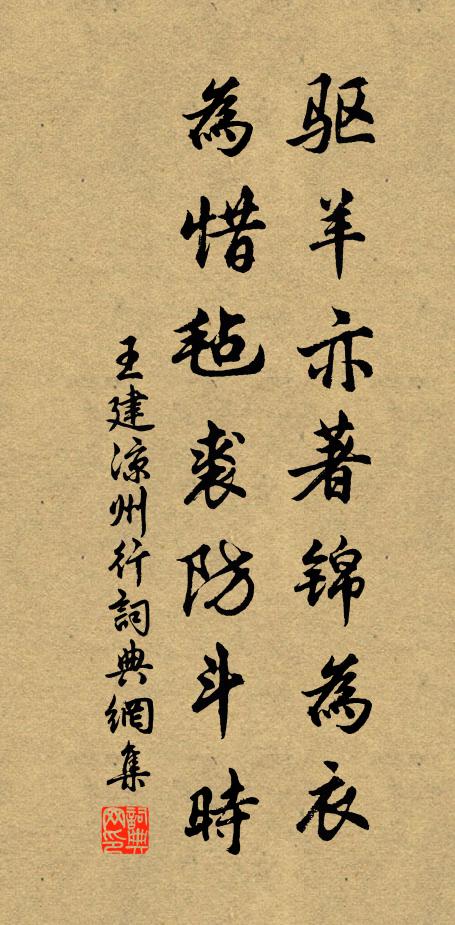 驱羊亦著锦為衣
為惜毡裘防斗時
王建凉州行詞典網集
詞典网印